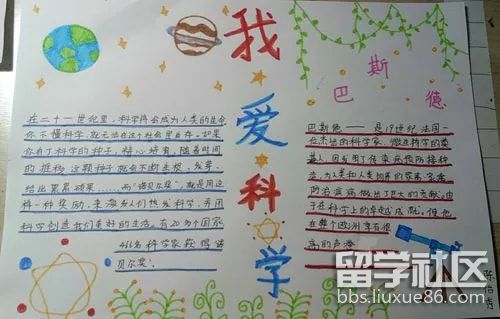 我爱科学
巴斯德
在二十一世纪里,科学将会成为人类的生命
你不懂科学,就无法在这个社会里生存。如果
你有了科学的种子,精心培育,随着时间
的推移,这颗种子就会不断生根、发芽
给出累累硕果……而“诺贝尔奖”,就是用这
样一种奖励,来激发人们热爱科学,并用
科学创造我们美好的生活。有20多个国家
461名科学家获得诺
贝尔奖。
巴斯德——是19世纪法国一
位杰出的科学家,微生物学的奠
基人,因发明了传染病预防接种
法,为人类和人类饲养的家禽、家畜
防治疾病做出了巨大的贡献。由
于在科学上的卓越成就,使他
在整个欧洲享有很
高的声誉
留学社区
bbs.liuxue86.com